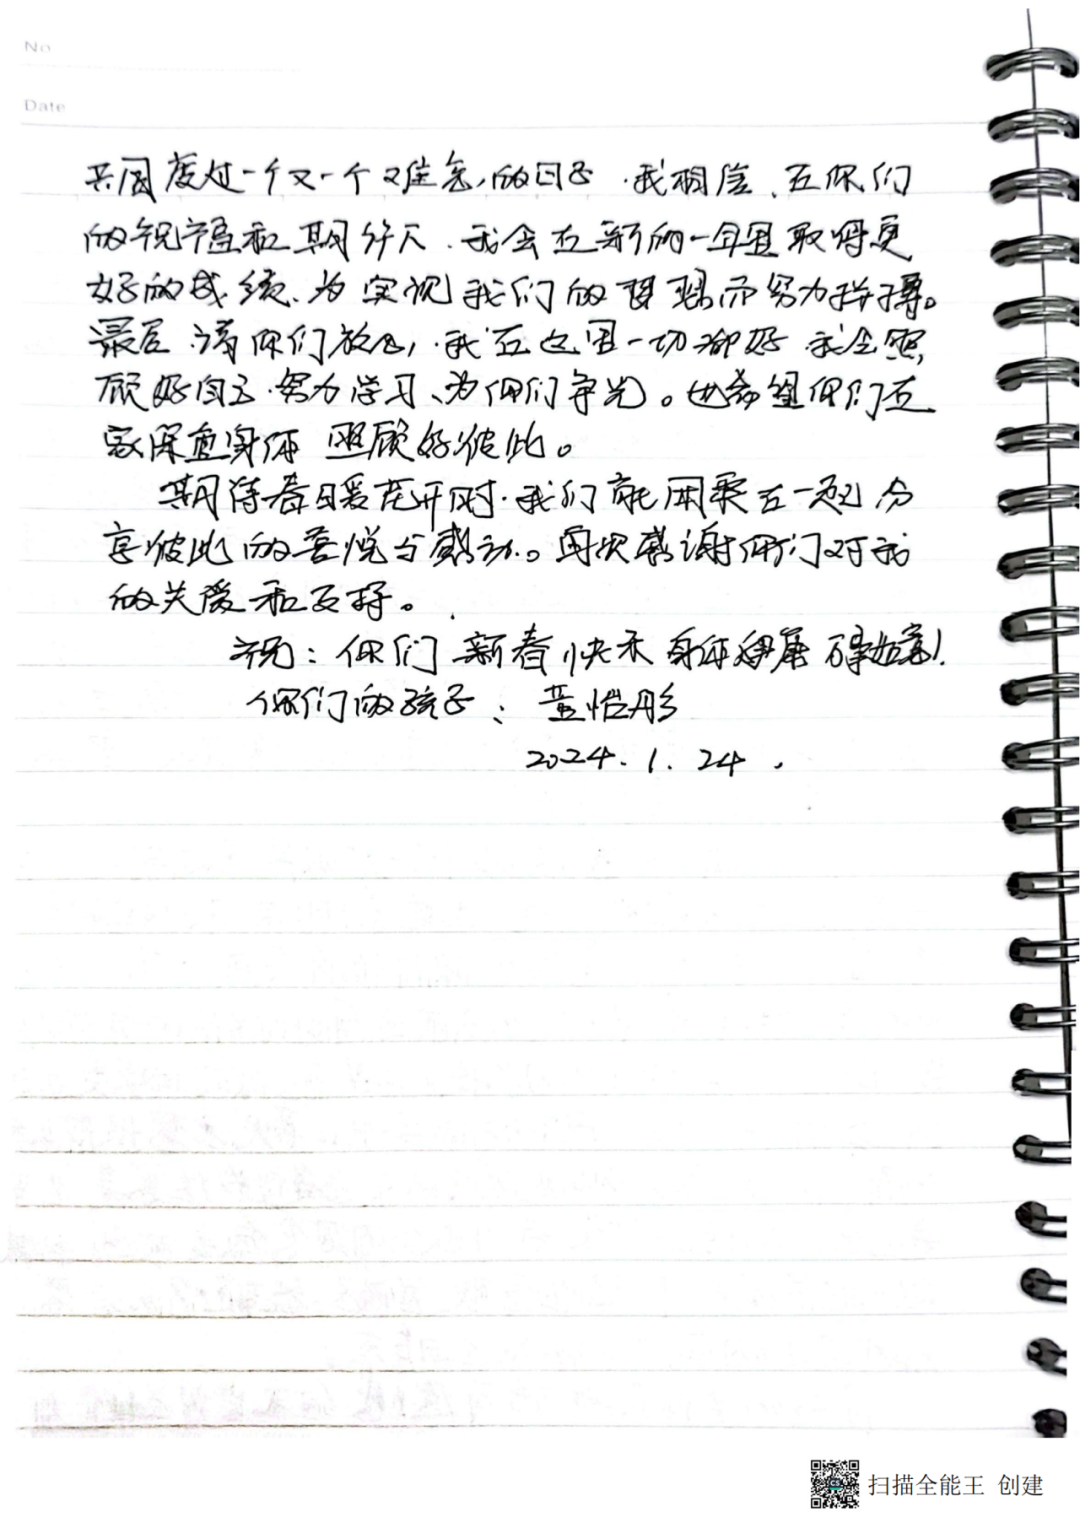 No
Date
共同度过一个又一个难忘的日子.我相信、在你们
的祝福和期许下.我会在新的一年里取得更
好的成绩、为实现我们的梦想而努力拼搏。
最后.请你们放心,.我在这里一切都好.我会照
顾好自己.努力学习、为你们争光。也希望你们在
家保重身体 照顾好彼此。
期待春日暖花开时.我们就能团聚在一起分
享彼此的喜悦与感动。再次感谢你们对我
的关爱和支持。
祝:你们 新春快乐 身体健康 万事如意!
你们的孩子: 黄怡彤
2024.1.24.
扫描全能王 创建